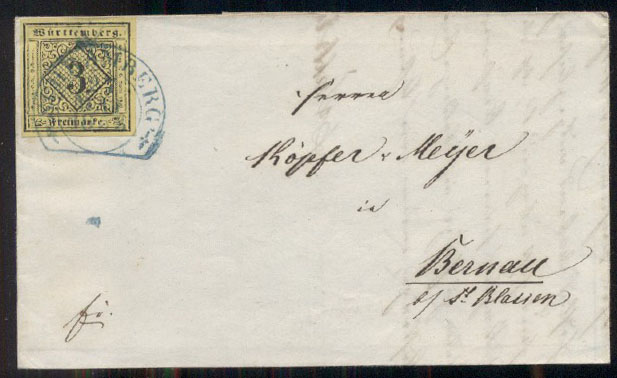 Württemberg.
3.
Freimarke.
Herren
Köpfer & Meyer
in
Bernau
b/ St Blasien
fr.